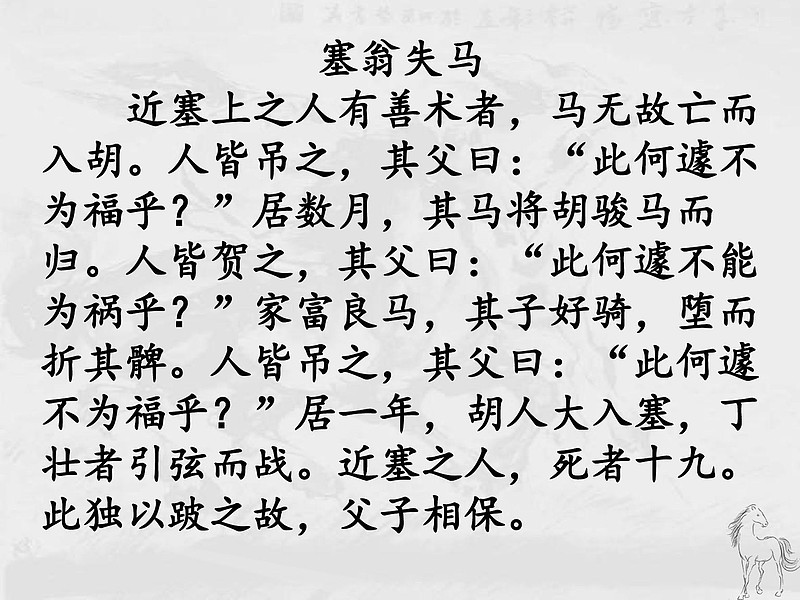 塞翁失马
近塞上之人有善术者，马无故亡而
入胡。人皆吊之，其父曰：“此何遽不
为福乎？”居数月，其马将胡骏马而
归。人皆贺之，其父曰：“此何遽不能
为祸乎？”家富良马，其子好骑，堕而
折其髀。人皆吊之，其父曰：“此何遽
不为福乎？”居一年，胡人大入塞，丁
壮者引弦而战。近塞之人，死者十九。
此独以跛之故，父子相保。